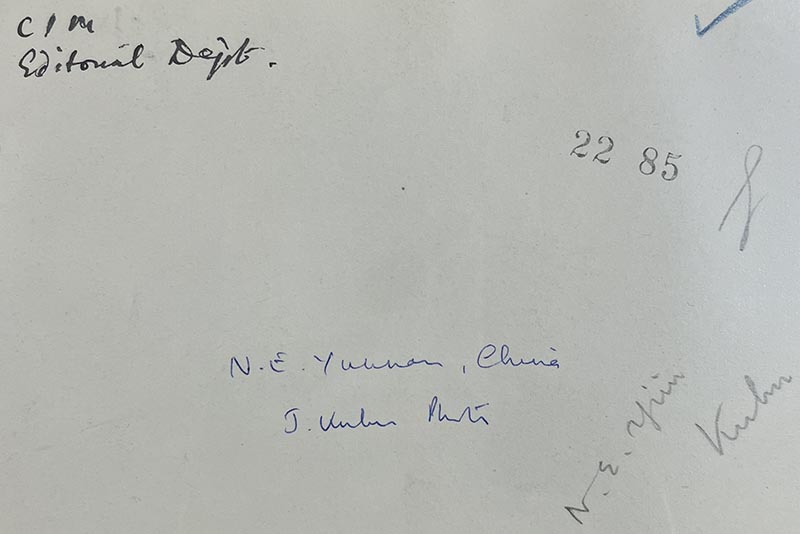 CIM
Editorial Dept.
22 85
N.E. Yunnan, China
J. Kuhn Photo
N.E. Yün
Kuhn